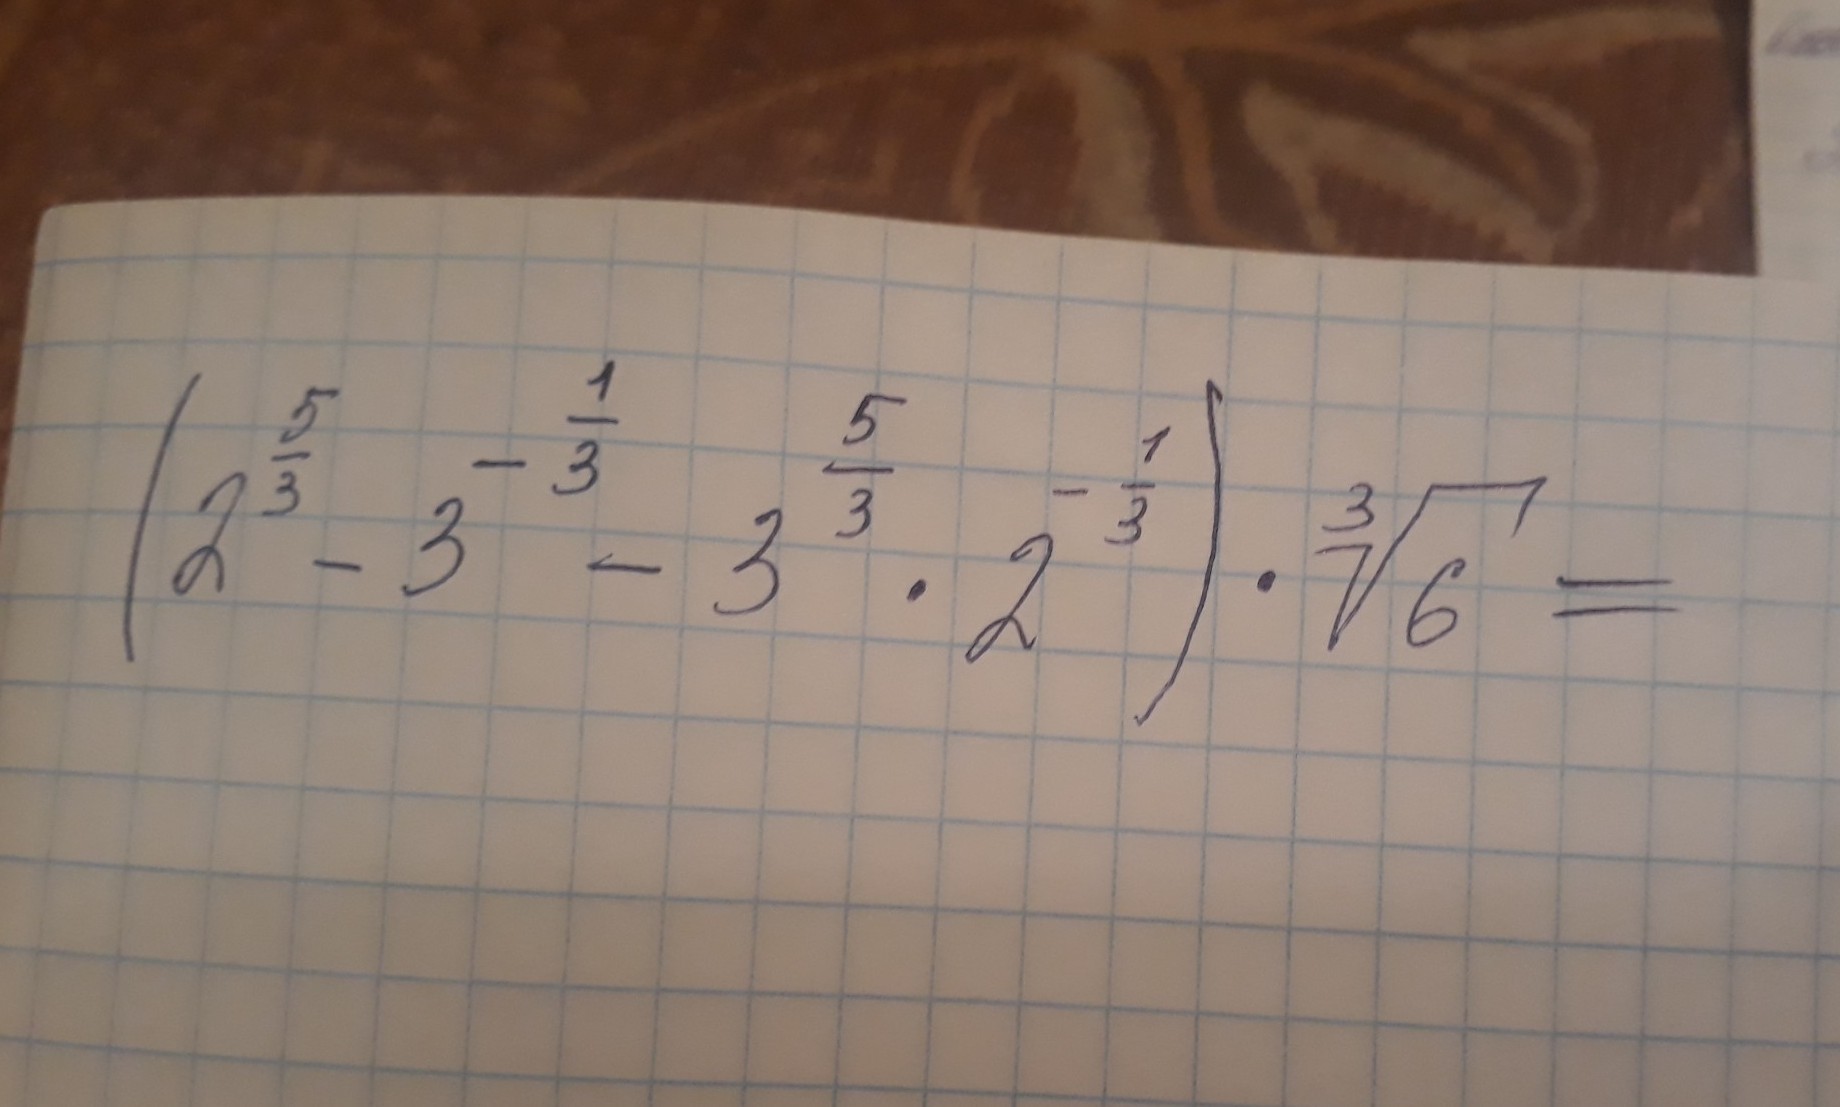 (2^{5/3} - 3^{-1/3} - 3^{5/3} · 2^{-1/3}) · ∛6 =